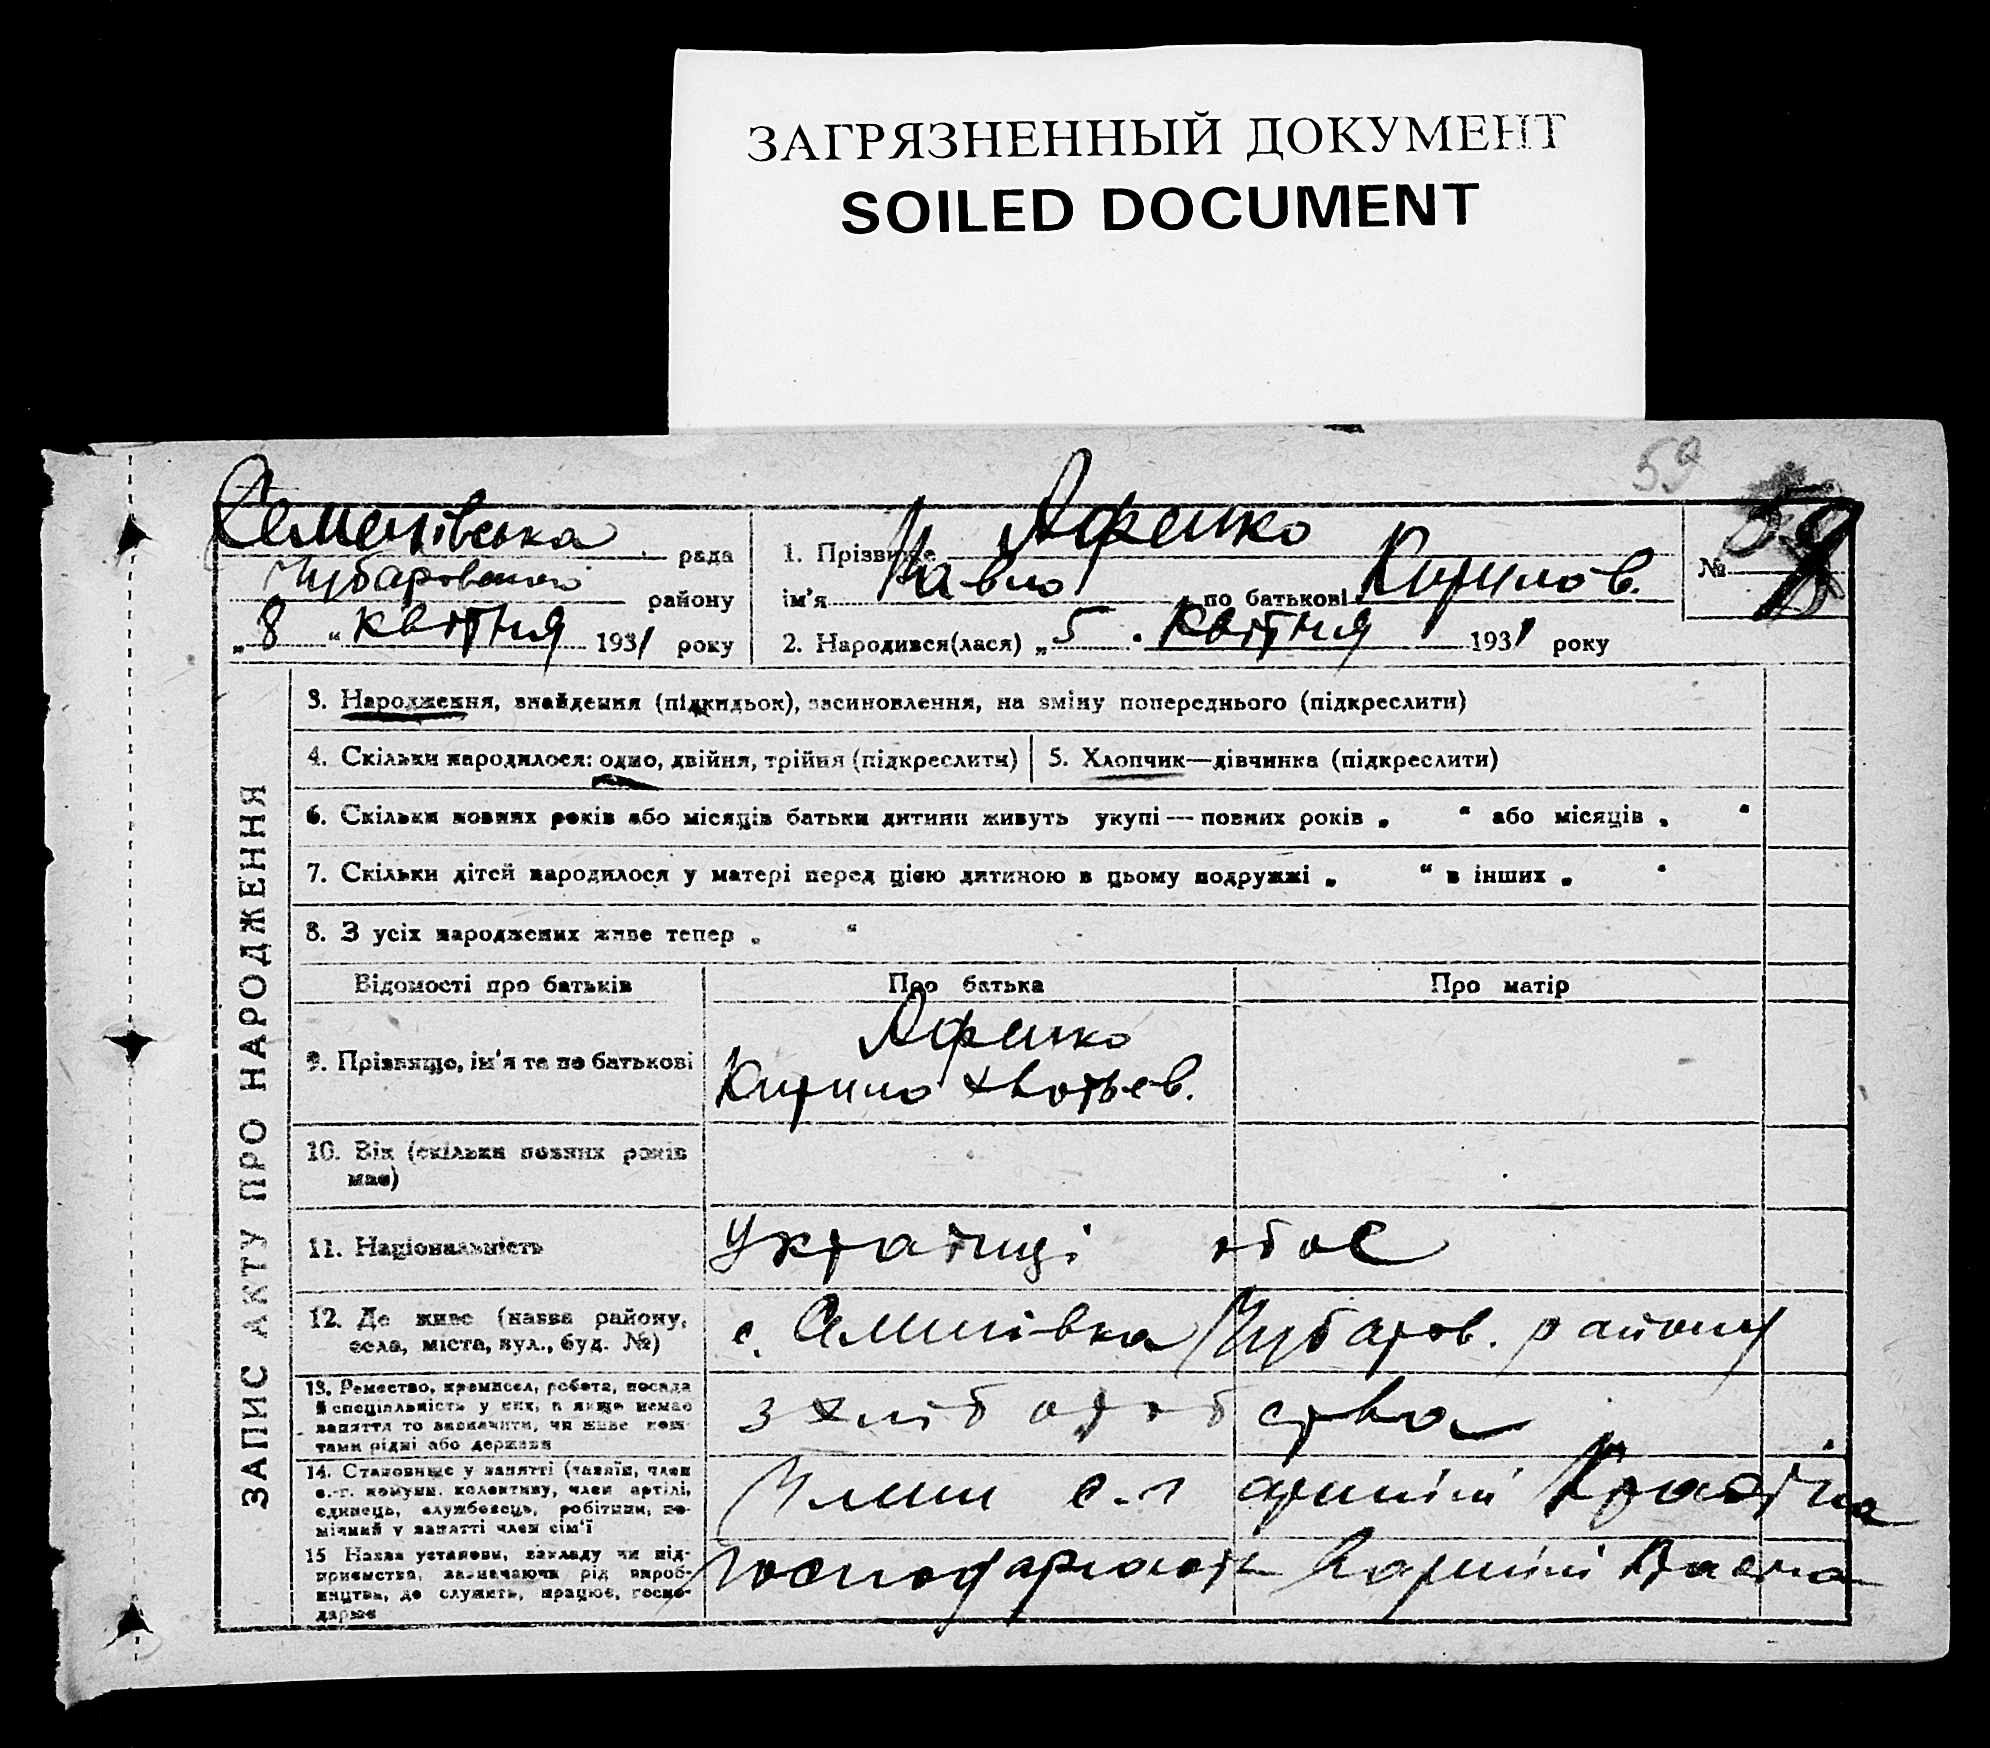 ЗАГРЯЗНЕННЫЙ ДОКУМЕНТ
SOILED DOCUMENT
59
Семенівська рада
Чубаровського району
„8“ квітня 1931 року
1. Прізвище
ім'я Павло по батькові Кирилов.
2. Народився(лася) „5. Квітня 1931 року
№ 59
ЗАПИС АКТУ ПРО НАРОДЖЕННЯ
3. Народження, знайдення (підкидьок), засиновлення, на зміну попереднього (підкреслити)
4. Скільки народилося: одно, двійня, трійня (підкреслити)
5. Хлопчик—дівчинка (підкреслити)
6. Скільки повних років або місяців батьки дитини живуть укупі — повних років „ “ або місяців „ “
7. Скільки дітей народилося у матері перед цією дитиною в цьому подружжі „ “ в інших „ “
8. З усіх народжених живе тепер „ “
Відомості про батьків
Про батька
Про матір
9. Прізвище, ім'я та по батькові
Кирило
10. Вік (скільки повних років
має)
11. Національність
Українці обоє
12. Де живе (назва району,
села, міста, вул., буд. №)
с. Семенівка Чубаров. району
13. Ремество, промисел, робота, посада
й спеціяльність у них, а якщо немає
заняття то зазначити, чи живе кош-
тами рідні або держави
з хліборобства
14. Становище у занятті (хазяїн, член
с.-г. комуни, колективу, член артілі,
єдинець, службовець, робітник, по-
мічний у занятті член сім'ї
Члени с.-г артілі
15 Назва установи, закладу чи під-
приємства, зазначаючи рід вироб-
ництва, де служить, працює, госпо-
дарює
господарюють